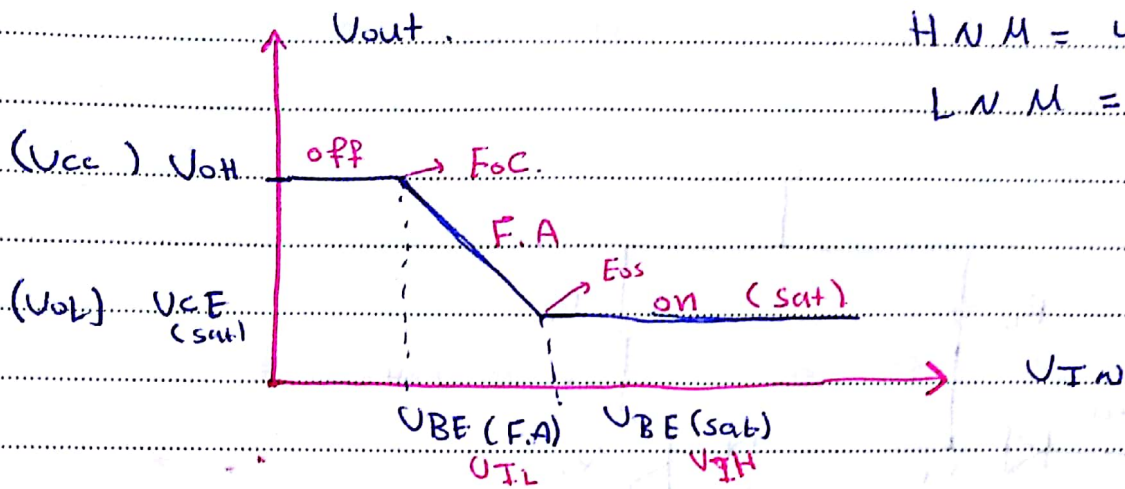 Vout.
HNM =
LNM =
(Vcc) VOH off → EoC.
F.A
Eos
(VOL) VCE on (sat)
(sat)
VIN
VBE (F.A) VBE (sat)
VIL VIH